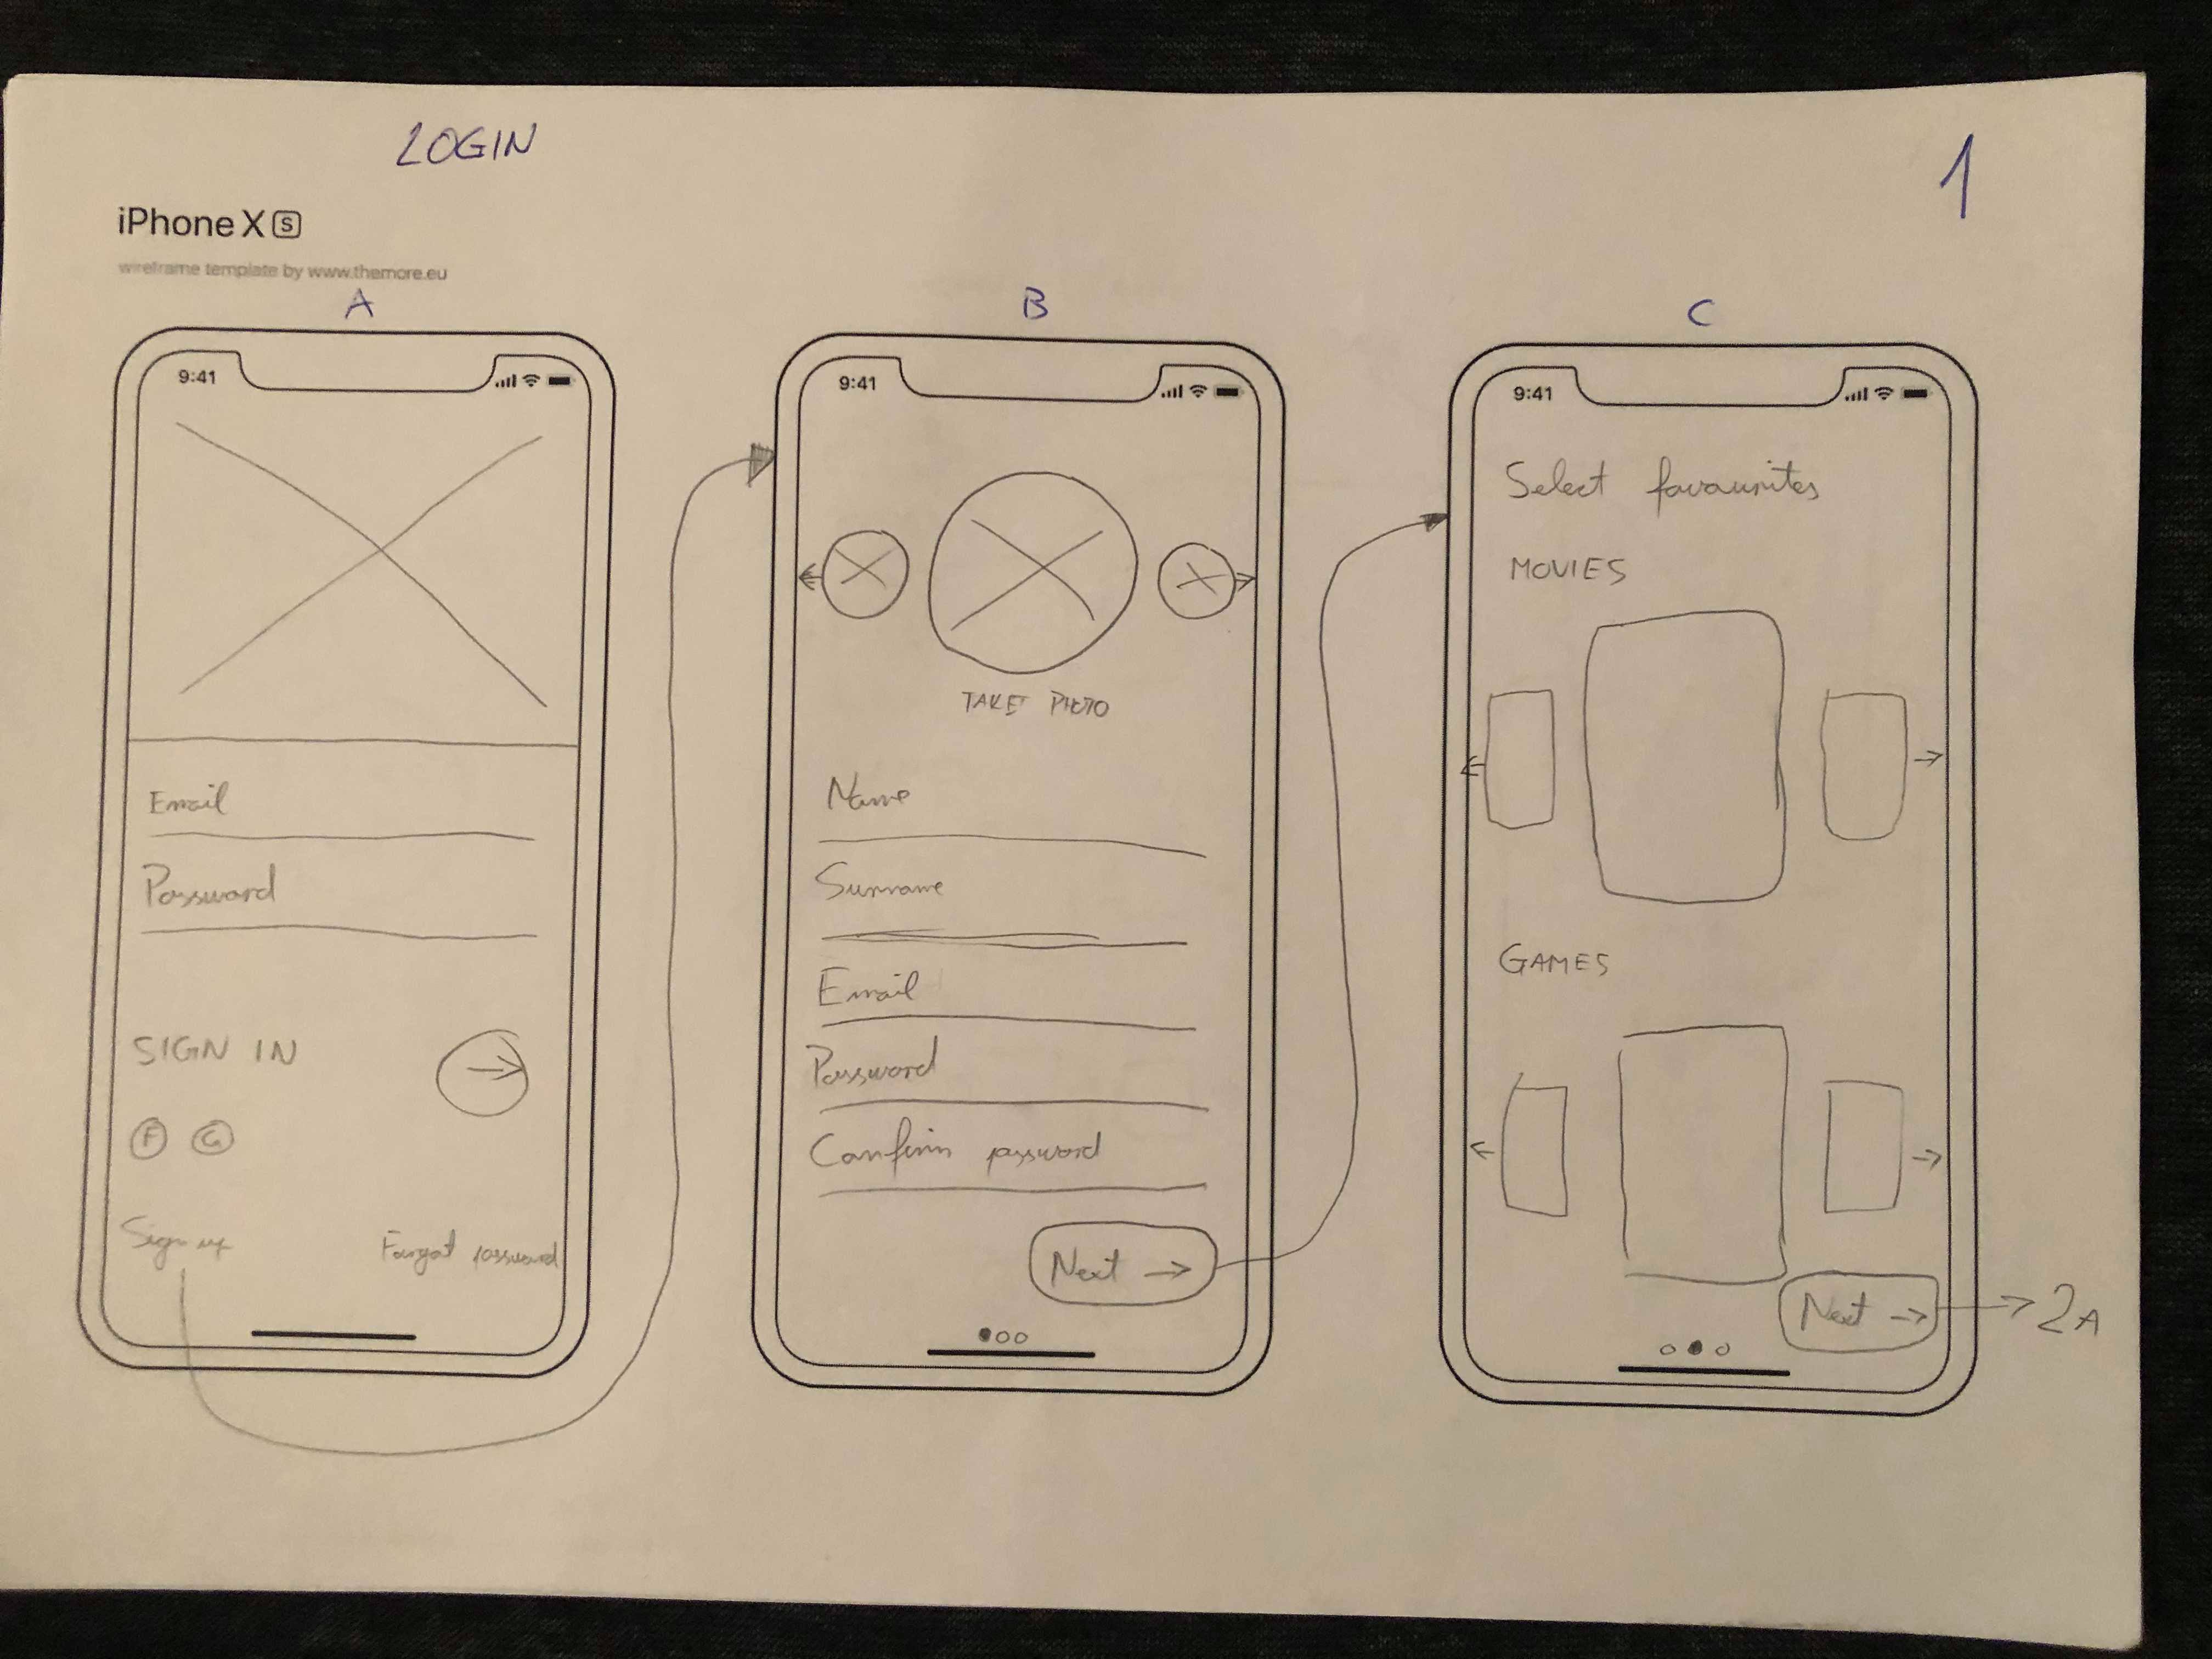 LOGIN
1
iPhone X S
wireframe template by www.themore.eu
A
9:41
Email
Password
SIGN IN
F G
Sign up
Forgot password
B
9:41
TAKE PHOTO
Name
Surname
Email
Password
Confirm password
Next →
C
9:41
Select favourites
MOVIES
GAMES
Next → → 2A